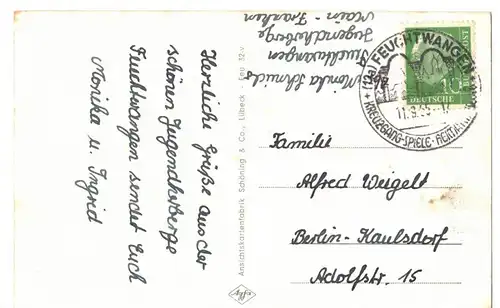 Herzliche Grüße aus der
schönen Jugendherberge
Feuchtwangen sendet Euch
Monika u. Ingrid
Monika Schmidt
Feuchtwangen
Jugendherberge
Main-Franken
Ansichtskartenfabrik Schöning & Co., Lübeck
(13a) FEUCHTWANGEN
KREUZGANG-SPIELE
11.9.55
10
DEUTSCHE
Agfa
Familie
Alfred Weigelt
Berlin-Kaulsdorf
Adolfstr. 15